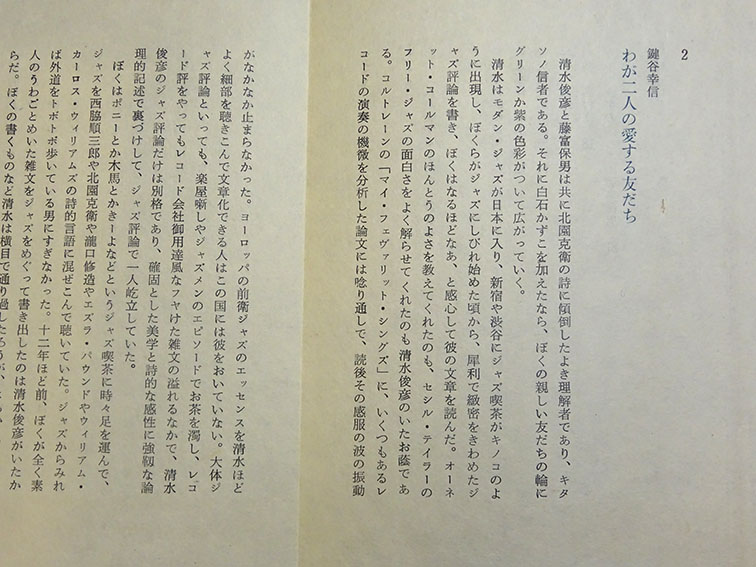 2
鍵谷幸信
わが二人の愛する友だち
清水俊彦と藤富保男は共に北園克衛の詩に傾倒したよき理解者であり、キタ
ソノ信者である。それに白石かずこを加えたなら、ぼくの親しい友だちの輪に
グリーンか紫の色彩がついて広がっていく。
清水はモダン・ジャズが日本に入り、新宿や渋谷にジャズ喫茶がキノコのよ
うに出現し、ぼくらがジャズにしびれ始めた頃から、犀利で緻密をきわめたジ
ャズ評論を書き、ぼくはなるほどなあ、と感心して彼の文章を読んだ。オーネ
ット・コールマンのほんとうのよさを教えてくれたのも、セシル・テイラーの
フリー・ジャズの面白さをよく解らせてくれたのも清水俊彦のいたお蔭であ
る。コルトレーンの「マイ・フェヴァリット・シングズ」に、いくつもあるレ
コードの演奏の機微を分析した論文には唸り通しで、読後その感服の波の振動
がなかなか止まらなかった。ヨーロッパの前衛ジャズのエッセンスを清水ほど
よく細部を聴きこんで文章化できる人はこの国には彼をおいていない。大体ジ
ャズ評論といっても、楽屋噺しやジャズメンのエピソードでお茶を濁し、レコ
ード評をやってもレコード会社御用達風なフヤけた雑文の溢れるなかで、清水
俊彦のジャズ評論だけは別格であり、確固とした美学と詩的な感性に強靱な論
理的記述で裏づけして、ジャズ評論で一人屹立していた。
ぼくはポニーとか木馬とかきーよなどというジャズ喫茶に時々足を運んで、
ジャズを西脇順三郎や北園克衛や瀧口修造やエズラ・パウンドやウィリアム・
カーロス・ウィリアムズの詩的言語に混ぜこんで聴いていた。ジャズからみれ
ば外道をトボトボ歩いている男にすぎなかった。十二年ほど前、ぼくが全く素
人のうわごとめいた雑文をジャズをめぐって書き出したのは清水俊彦がいたか
らだ。ぼくの書くものなど清水は横目で通り過したろうが、